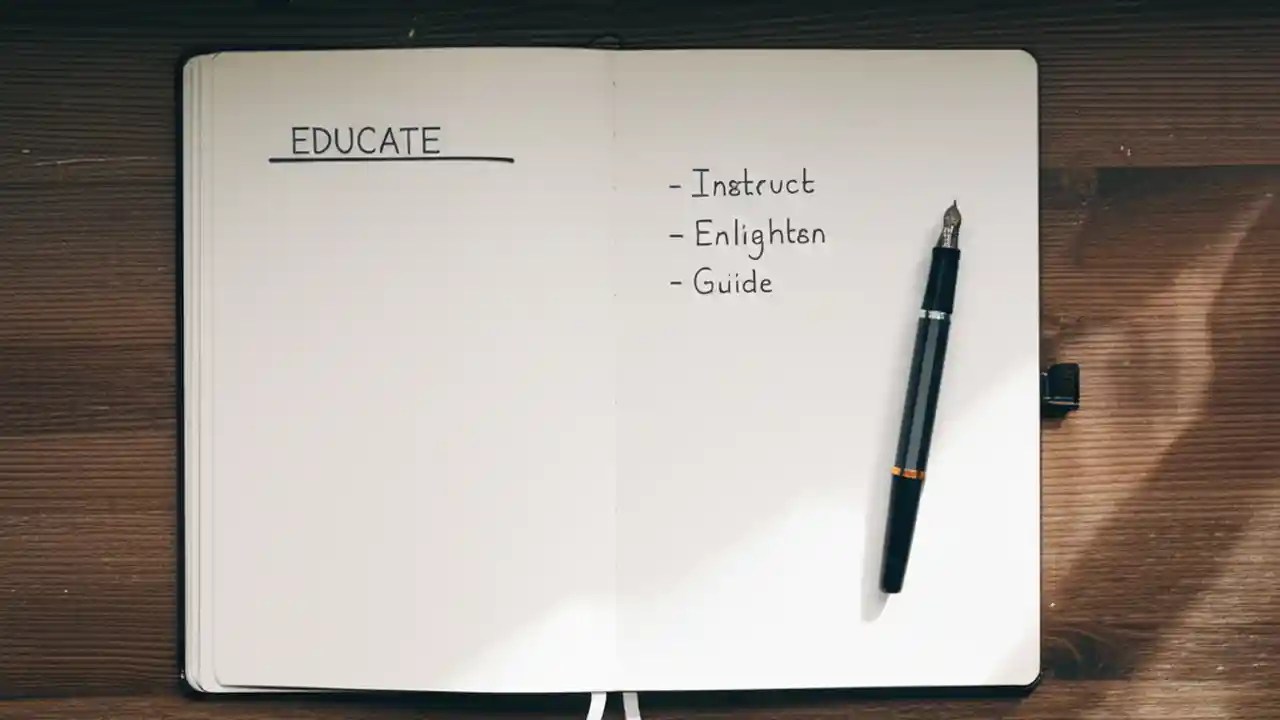 EDUCATE
- Instruct
- Enlighten
- Guide